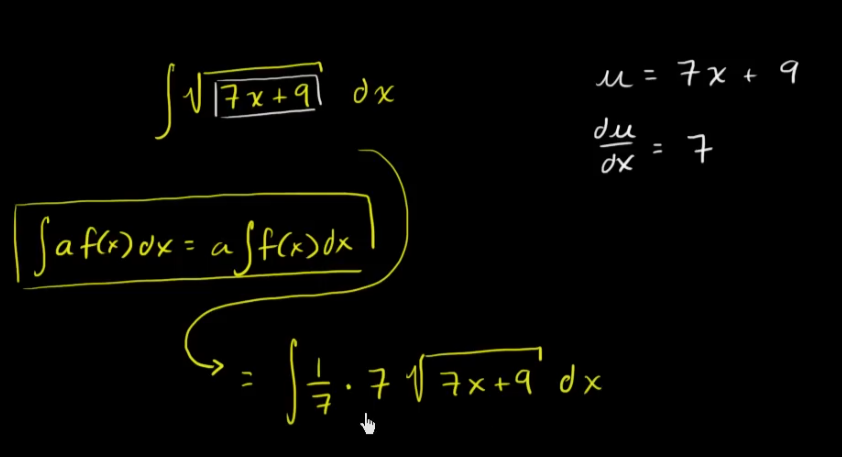 ∫ √(7x+9) dx
u = 7x + 9
du/dx = 7
∫ a f(x) dx = a ∫ f(x) dx
= ∫ 1/7 · 7 √(7x+9) dx